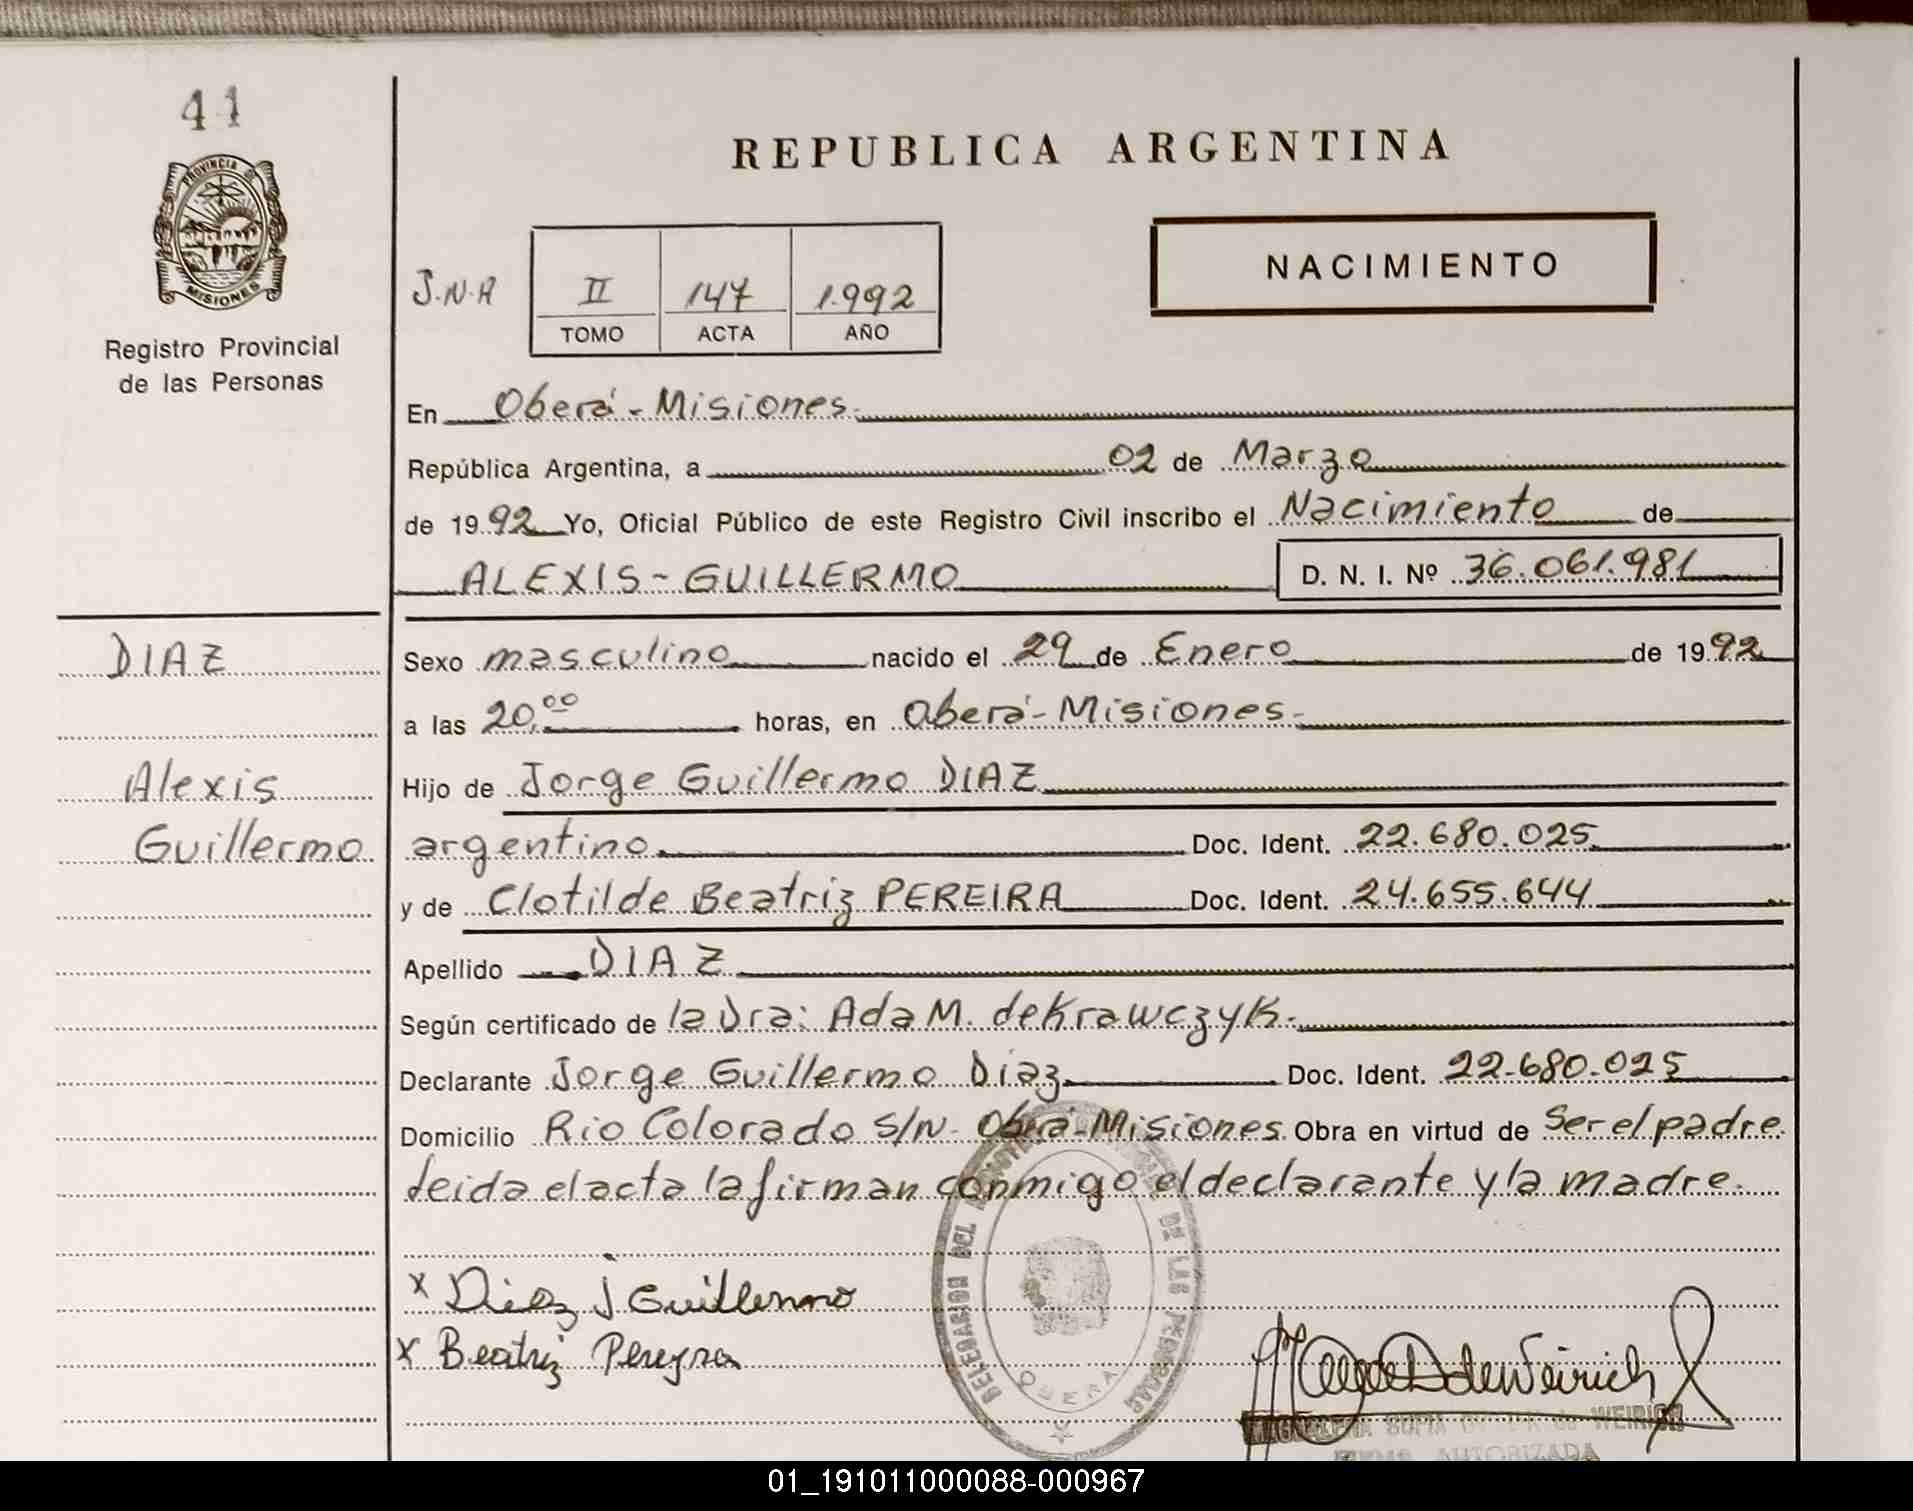 41
PROVINCIA DE
MISIONES
Registro Provincial
de las Personas
REPUBLICA ARGENTINA
J.N.A
II 147 1.992
TOMO ACTA AÑO
NACIMIENTO
En Oberá - Misiones.
República Argentina, a 02 de Marzo
de 1992 Yo, Oficial Público de este Registro Civil inscribo el Nacimiento de
ALEXIS - GUILLERMO D. N. I. Nº 36.061.981
DIAZ
Alexis
Guillermo
Sexo masculino nacido el 29 de Enero de 1992
a las 20,00 horas, en Oberá - Misiones -
Hijo de Jorge Guillermo DIAZ
argentino. Doc. Ident. 22.680.025
y de Clotilde Beatriz PEREIRA Doc. Ident. 24.655.644
Apellido DIAZ
Según certificado de la Dra: Ada M. de Krawczyk.
Declarante Jorge Guillermo Diaz Doc. Ident. 22.680.025
Domicilio Rio Colorado S/N - Oberá - Misiones Obra en virtud de Ser el padre
leida el acta la firman conmigo el declarante y la madre.
x Diaz J Guillermo
x Beatriz Pereyra
DELEGACION DEL DE LAS PERSONAS
OBERA
de Weirich
MAGDALENA SOFIA de WEIRICH
FIRMA AUTORIZADA
01_191011000088-000967